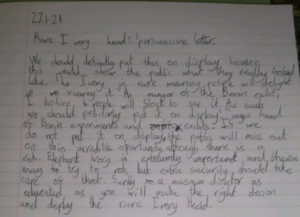 27.1.21
Rare Ivory head: persuasive letter.
We should definitely put this on display because
this would show the public what they really looked
like. The Ivory is rare meaning people will delight
in viewing it. As manger of the Benin exibit,
I belive people will flock to see it. As such
we should probably put it on display
of benin experiments and exibits. If we
do not put it on display the public will miss out
on this incredible oportunity although there is a
risk. Elephant Ivory is extreamly important and
to try to rob, but extra security should take
care of that. Surely a museum director as
educated as you will make the right decion
and deploy the rare Ivory Head.